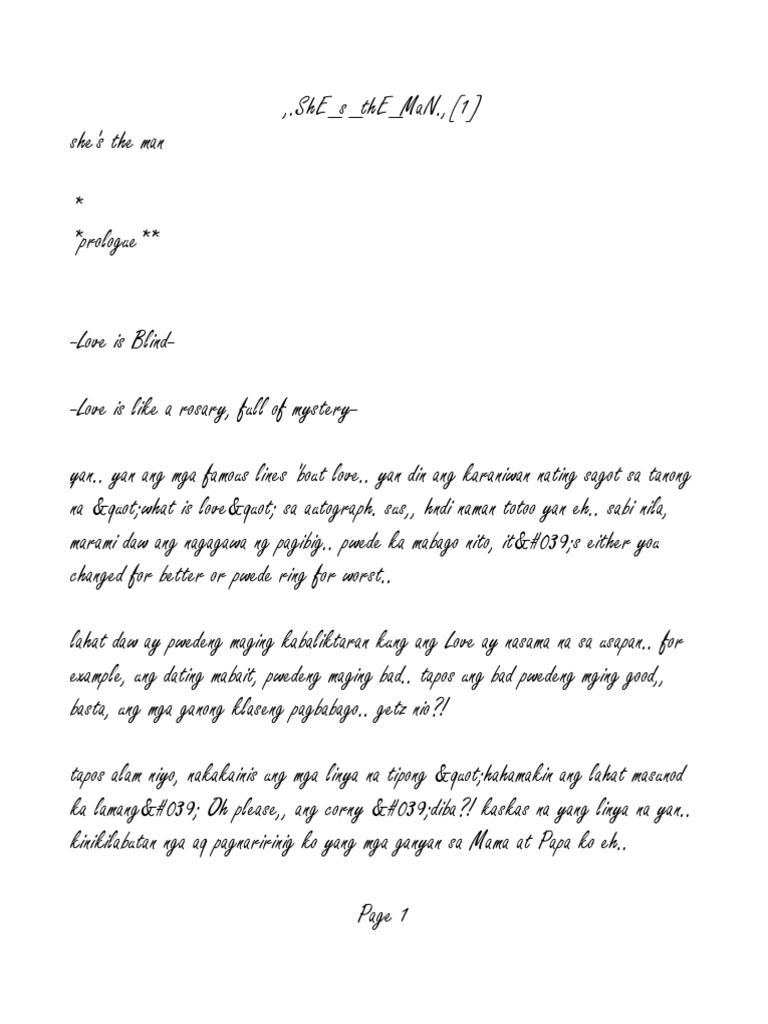 ,.ShE_s_thE_MaN.,[1]
she's the man
*
*prologue**
-Love is Blind-
-Love is like a rosary, full of mystery-
yan.. yan ang mga famous lines 'bout love.. yan din ang karaniwan nating sagot sa tanong
na &quot;what is love&quot; sa autograph. sus,, hndi naman totoo yan eh.. sabi nila,
marami daw ang nagagawa ng pagibig.. pwede ka mabago nito, it&#039;s either you
changed for better or pwede ring for worst..
lahat daw ay pwedeng maging kabaliktaran kung ang Love ay nasama na sa usapan.. for
example, ung dating mabait, pwedeng maging bad.. tapos ung bad pwedeng mging good,,
basta, ung mga ganong klaseng pagbabago.. getz nio?!
tapos alam niyo, nakakainis ung mga linya na tipong &quot;hahamakin ang lahat masunod
ka lamang&#039; Oh please,, ang corny &#039;diba?! kaskas na yang linya na yan..
kinikilabutan nga aq pagnaririnig ko yang mga ganyan sa Mama at Papa ko eh..
Page 1